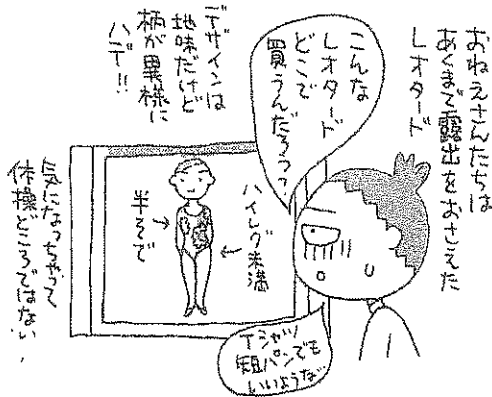 おねえさんたちは
あくまで露出をおさえた
レオタード
こんな
レオタード
どこで
買うんだろうっ
デザインは
地味だけど
柄が異様に
ハデ!!
ハイレグ未満
半そで
気になっちゃって
体操どころではない!
Tシャツ
短パンでも
いいような